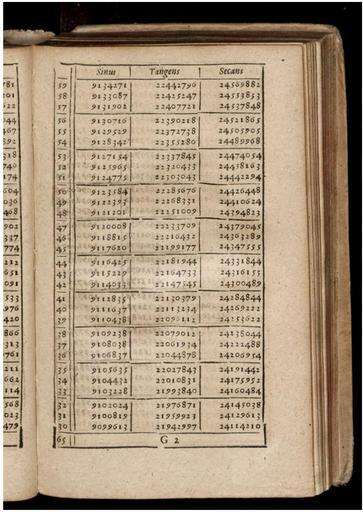 Sinus Tangens Secans
59 9134271 22442796 24569882
58 9133087 22425247 24553853
57 9131902 22407721 24537848
56 9130716 22390218 24521865
55 9129529 22372738 24505905
54 9128342 22355280 24489968
53 9127154 22337845 24474054
52 9125965 22320433 24458163
51 9124775 22303043 24442294
50 9123584 22285676 24426448
49 9122393 22268331 24410624
48 9121201 22251009 24394823
47 9120008 22233709 24379045
46 9118815 22216432 24363289
45 9117620 22199177 24347555
44 9116425 22181944 24331844
43 9115229 22164733 24316155
42 9114033 22147545 24300489
41 9112835 22130379 24284844
40 9111637 22113234 24269222
39 9110438 22096112 24253622
38 9109238 22079012 24238044
37 9108038 22061934 24222488
36 9106837 22044878 24206954
35 9105635 22027843 24191442
34 9104432 22010831 24175952
33 9103228 21993840 24160484
32 9102024 21976871 24145038
31 9100819 21959923 24129613
30 9099613 21942997 24114210
65 G 2